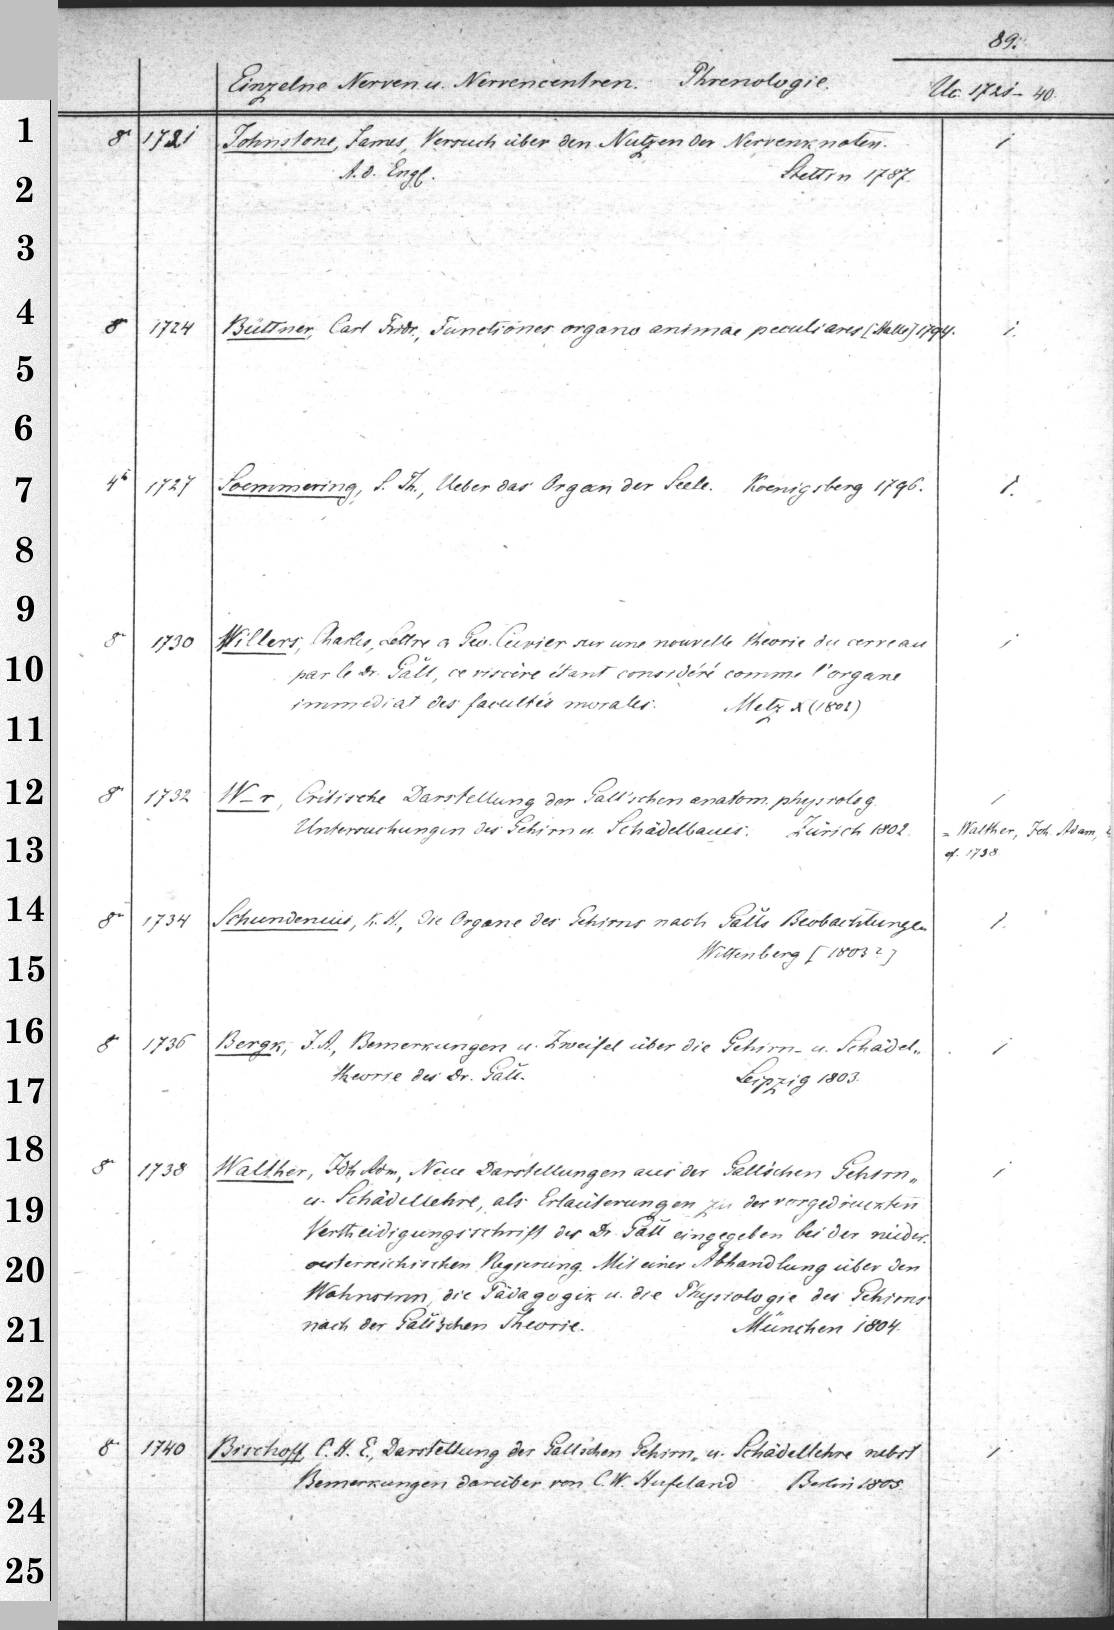 89.
Einzelne Nerven u. Nervencentren. Phrenologie.
Uc. 1721-40.
1 8° 1721 Johnstone, James, Versuch über den Nutzen der Nervenknoten. 1
2 A. d. Engl. Stettin 1787.
3
4 8° 1724 Büttner, Carl Fridr., Functiones organo animae peculiares [Halle] 1794. 1.
5
6
7 4° 1727 Soemmering, S. Th., Ueber das Organ der Seele. Koenigsberg 1796. 1.
8
9 8° 1730 Villers, Charles, Lettre a Geo. Cuvier sur une nouvelle theorie du cerveau 1
10 par le Dr. Gall, ce viscère étant considéré comme l'organe
11 immédiat des facultés morales. Metz X (1802)
12 8° 1732 W-r, Critische Darstellung der Gall'schen anatom. physiolog. 1
13 Untersuchungen des Gehirn u. Schädelbaues. Zürich 1802. = Walther, Joh. Adam,
cf. 1738
14 8° 1734 Schundenius, K. H., Die Organe des Gehirns nach Galls Beobachtungen 1.
15 Wittenberg [1803?]
16 8° 1736 Bergk, J. A., Bemerkungen u. Zweifel über die Gehirn- u. Schädel- 1
17 theorie des Dr. Gall. Leipzig 1803.
18 8° 1738 Walther, Joh Adm, Neue Darstellungen aus der Gallschen Gehirn- 1
19 u. Schädellehre, als Erläuterungen zu der vorgedruckten
Vertheidigungsschrift des Dr. Gall eingegeben bei der nieder-
20 oesterreichischen Regierung. Mit einer Abhandlung über den
Wahnsinn, die Pädagogik u. die Physiologie des Gehirns
21 nach der Gall'schen Theorie. München 1804.
22
23 8° 1740 Bischoff, C. H. E., Darstellung der Gallschen Gehirn- u. Schädellehre nebst 1
24 Bemerkungen darüber von C. W. Hufeland Berlin 1805.
25